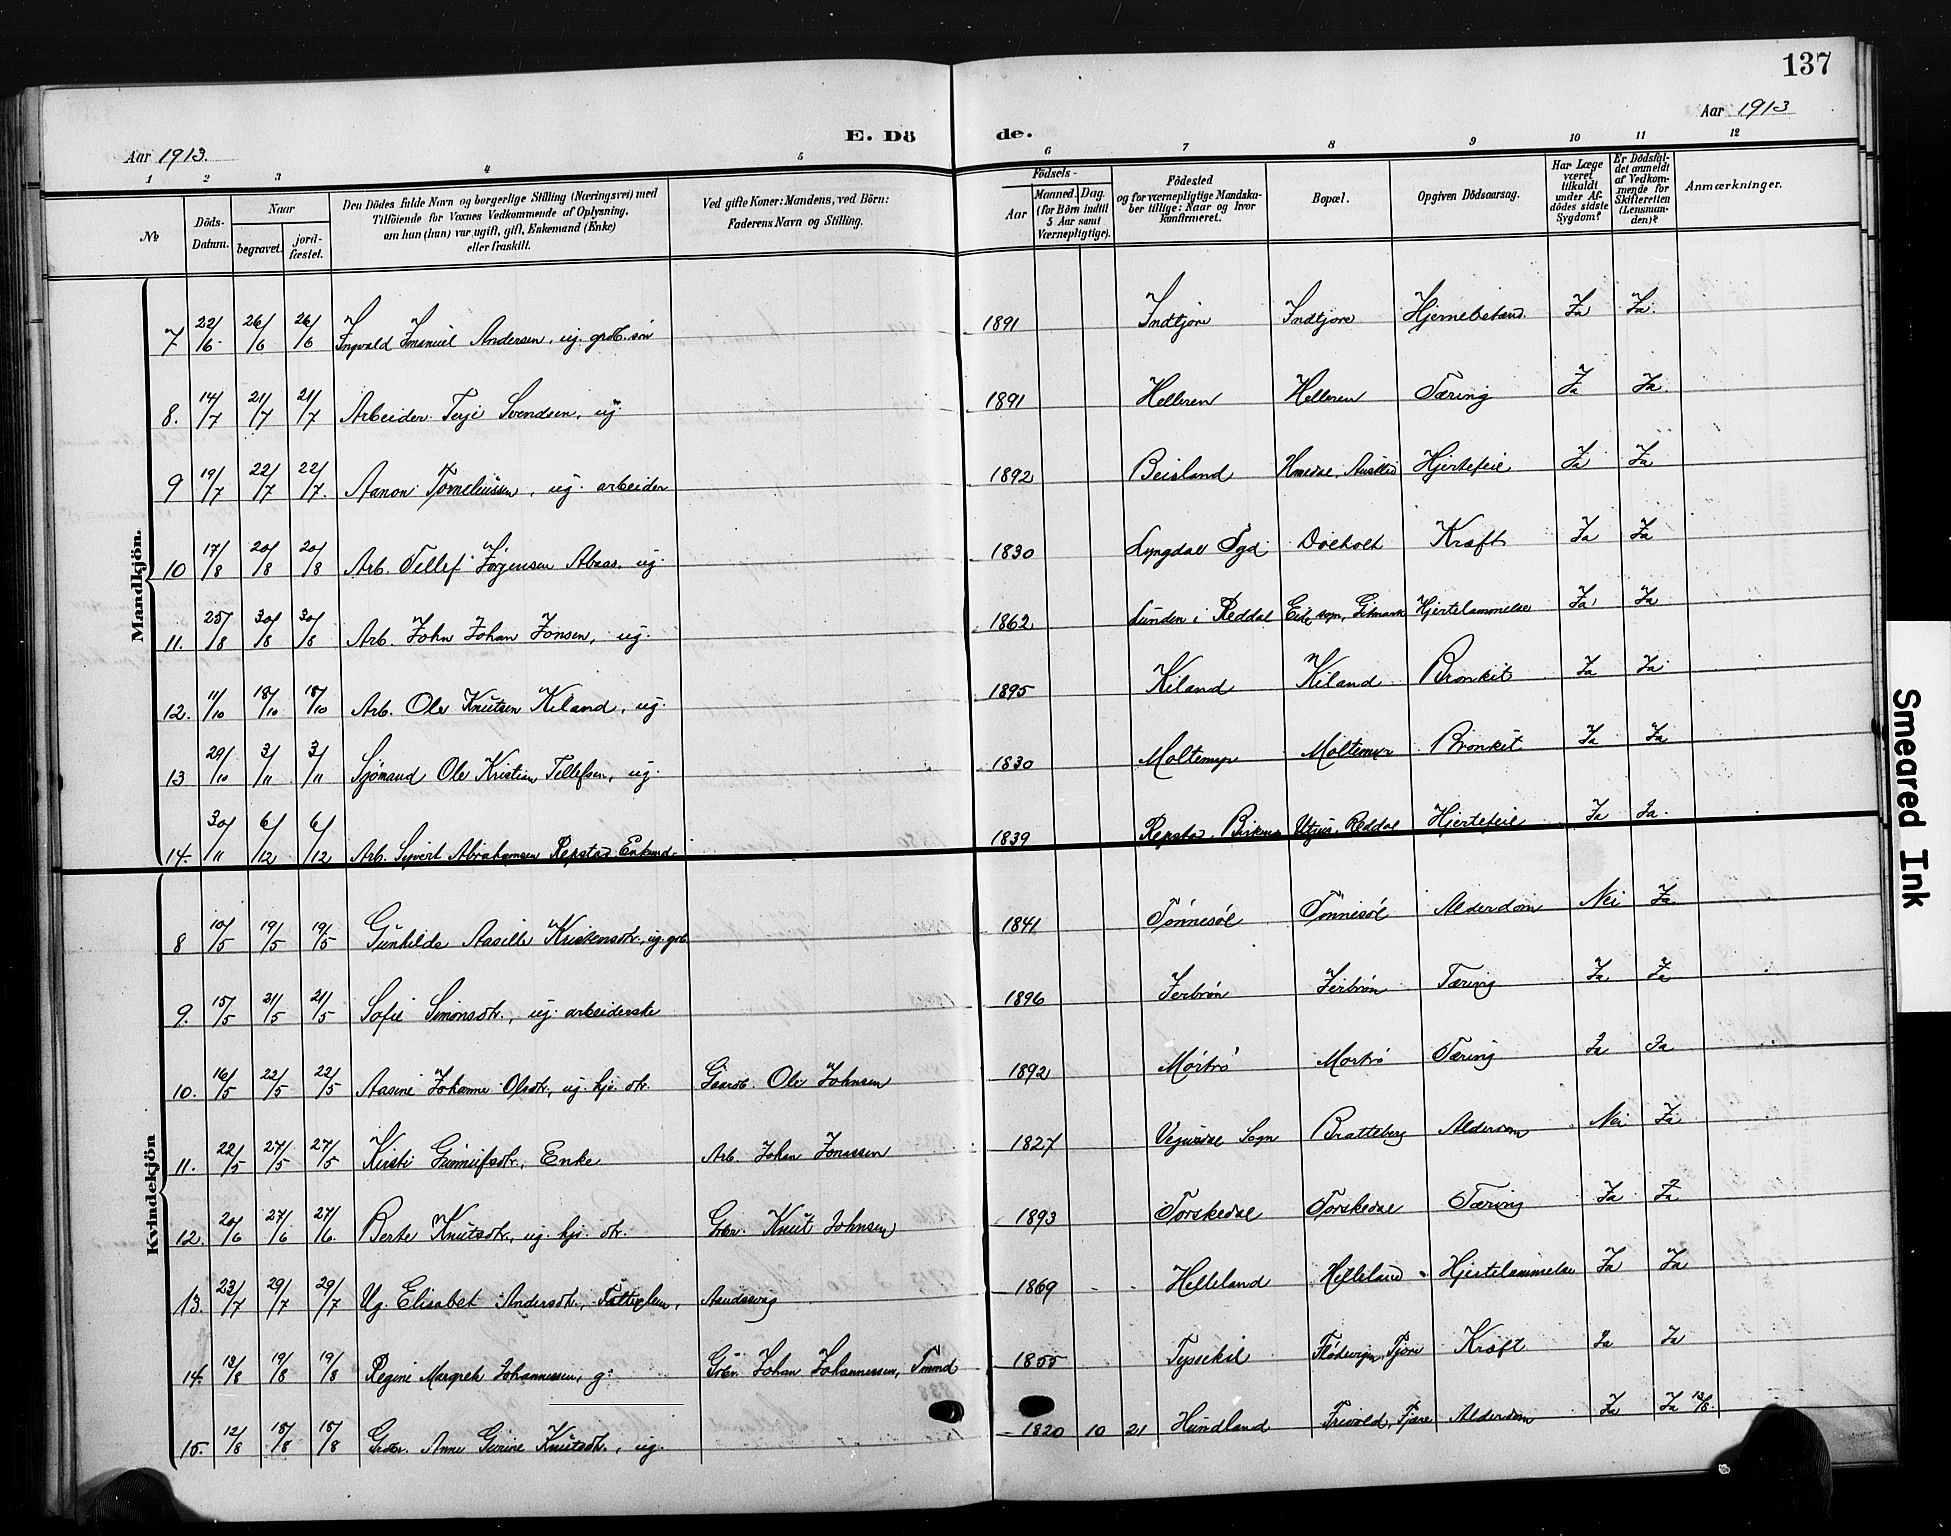 137
E. Dödé.
Aar 1913.
Aar 1913
1 2 3 4 5 6 7 8 9 10 11 12
№
Döds-Datum.
Naar
begravet.
jordfæstet.
Den Dödes fulde Navn og borgerlige Stilling (Næringsvei) med
Tilföiende for Voxnes Vedkommende af Oplysning,
om han (hun) var ugift, gift, Enkemand (Enke)
eller fraskilt.
Ved gifte Koner: Mandens, ved Börn:
Faderens Navn og Stilling.
Födsels-
Aar
Maaned. Dag.
(for Börn indtil
5 Aar samt
Værnepligtige).
Födested
og for værnepligtige Mandskaber tillige: Naar og hvor konfirmeret.
Bopæl.
Opgiven Dödsaarsag.
Har Læge været tilkaldt under Afdödes sidste Sygdom?
Er Dödsfaldet anmeldt af Vedkommende for Skifteretten (Lensmanden)?
Anmærkninger.
Mandkjön.
7 22/6 26/6 26/6 Ingvald Imanuel Andersen, ug. grdb. sön 1891 Indtjore Indtjore Hjernebetænd. Ja Ja.
8. 14/7 21/7 21/7 Arbeider Terje Svendsen, ug. 1891 Helleren Helleren Tæring Ja Ja.
9 19/7 22/7 22/7. Aanon Torneliussen, ug. arbeider 1892 Beisland Hjertefeil Ja Ja
10 17/8 20/8 20/8 Arb. Tellef Jörgensen Abaas. ug. 1830 Lyngdal Pgd. Dölholt Kræft Ja Ja
11. 25/8 30/8 30/8 Arb. John Johan Jonsen, ug. 1862 Lunden i Reddal Eide sogn, Gitmark Hjertelammelse Ja Ja
12. 11/10 18/10 18/10 Arb. Ole Knutsen Kiland, ug. 1895 Kiland Kiland Bronkit Ja Ja
13 29/10 3/11 3/11 Sjömand Ole Kristian Tellefsen, ug. 1830 Moltemyr Moltemyr Bronkit Ja Ja
14. 30/11 6/12 6/12 Arb. Syvert Abrahamsen Repstad Enkmd. 1839 Repstad, Birkenes Utjus, Reddal Hjertefeil Ja Ja.
Kvindekjön
8 10/5 19/5 19/5 Gunhilde Aasille Kristensdtr., ug. grb. 1841 Tönnesöl Tönnesöl Alderdom Nei Ja
9. 15/5 21/5 21/5 Sofie Simonsdtr., ug. arbeiderske 1896 Jerbrön Jerbrön Tæring Ja Ja
10. 16/5 22/5 22/5 Aasine Johanne Olsdtr., ug. hjv. dtr. Gaardb. Ole Johnsen 1892 Mörtrö Mortrö Tæring Ja Ja
11. 22/5 27/5 27/5 Kirsti Gunnulfsdtr. Enke Arb. Johan Jonassen 1827 Vegusdal Sogn Bratteberg Alderdom Nei Ja
12. 20/6 27/6 27/6. Berte Knutsdtr., ug. hjv. dtr. Grbr. Knut Johnsen 1893 Torskedal Torskedal Tæring Ja Ja
13. 23/7 29/7 29/7 Ug. Elisabet Andersdtr., Fattiglem, Aandssvag 1869 Helleland Helleland Hjertelammelse Ja Ja
14. 13/8 19/8 19/8 Regine Margrete Johannessen, g. Grbr. Johan Johannessen, Tmmd 1855 Tyssekil Flödevigen, Fjære Kræft Ja Ja
15. 12/8 18/8 18/8 Grdbr. Anne Gurine Knutsdtr., ug. 1820 10 21 Hundland Trivold, Fjære Alderdom Ja Ja 13/8.
Smeared Ink